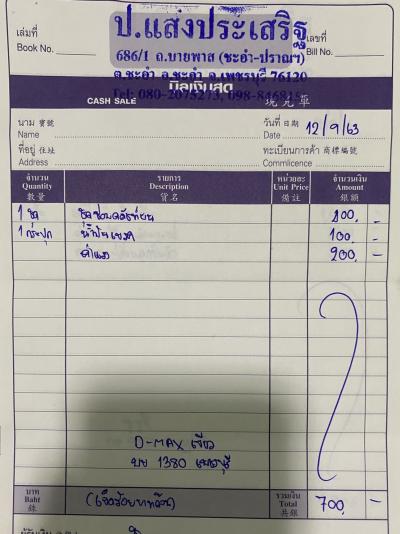 ป.แสงประเสริฐ
เล่มที่
Book No.
เลขที่
Bill No.
686/1 ถ.บายพาส (ชะอำ-ปราณฯ)
ต.ชะอำ อ.ชะอำ จ.เพชรบุรี 76120
บิลเงินสด
CASH SALE 現 兌 單
นาม 寶號
Name
วันที่ 日期
Date 12/9/63
ที่อยู่ 住址
Address
ทะเบียนการค้า 商標編號
Commlicence
จำนวน รายการ หน่วยละ จำนวนเงิน
Quantity Description Unit Price Amount
數量 貨名 備註 銀額
1 ชุด
1 กระปุก 100.-
ค่าแรง 200.-
D-MAX เขียว
บย 1380 เพชรบุรี
บาท รวมเงิน
Baht (เจ็ดร้อยบาทถ้วน) Total 700.-
銖 共銀